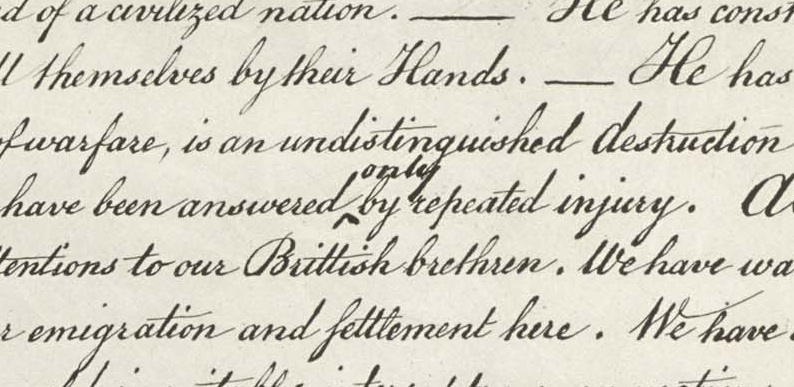 of a civilized nation. — He has
themselves by their Hands. — He has
of warfare, is an undistinguished destruction
only
have been answered ‸ by repeated injury.
to our Brittish brethren. We have
emigration and settlement here. We have